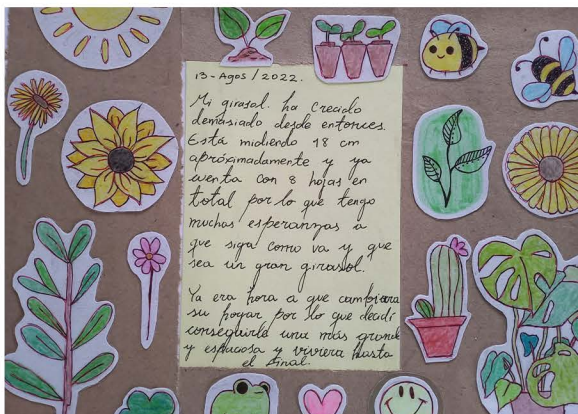 13-Agos/2022.
Mi girasol ha crecido
demasiado desde entonces.
Está midiendo 18 cm
apróximadamente y ya
cuenta con 8 hojas en
total por lo que tengo
muchas esperanzas a
que siga como va y que
sea un gran girasol.
Ya era hora a que cambiara
su hogar por lo que decidí
conseguirle una más grande
y espaciosa y vivirera hasta
el final.